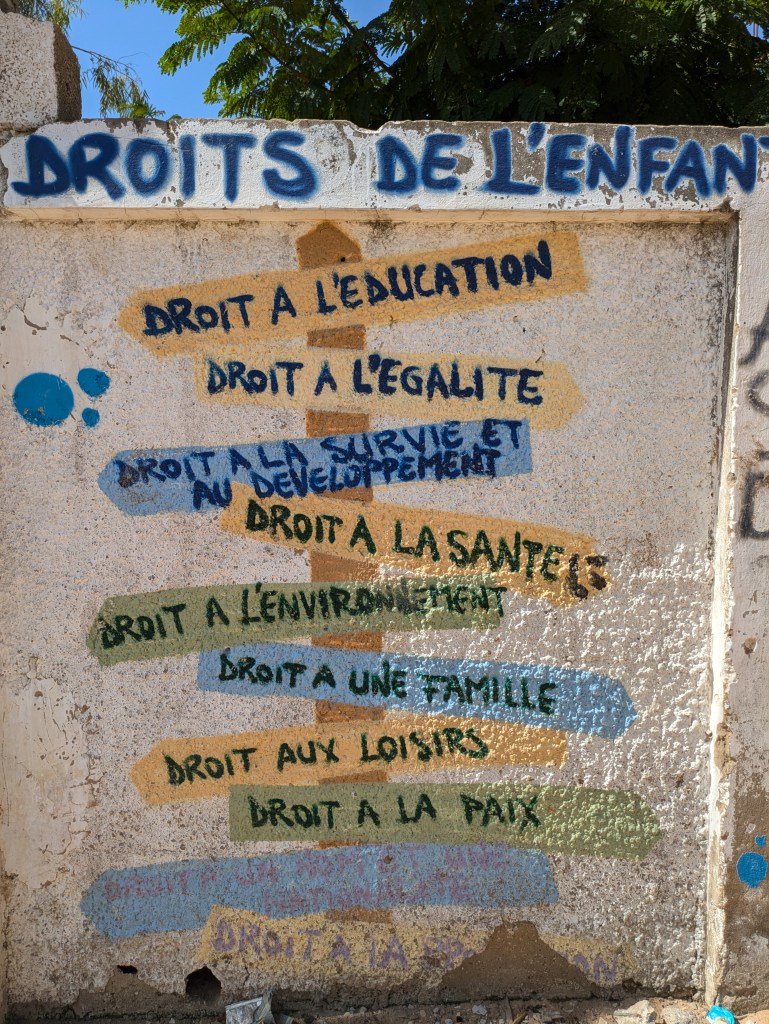 DROITS DE L'ENFANT
DROIT A L'EDUCATION
DROIT A L'EGALITE
DROIT A LA SURVIE ET
AU DEVELOPPEMENT
DROIT A LA SANTE
DROIT A L'ENVIRONNEMENT
DROIT A UNE FAMILLE
DROIT AUX LOISIRS
DROIT A LA PAIX
DROIT A UN NOM ET UNE
NATIONALITE
DROIT A LA